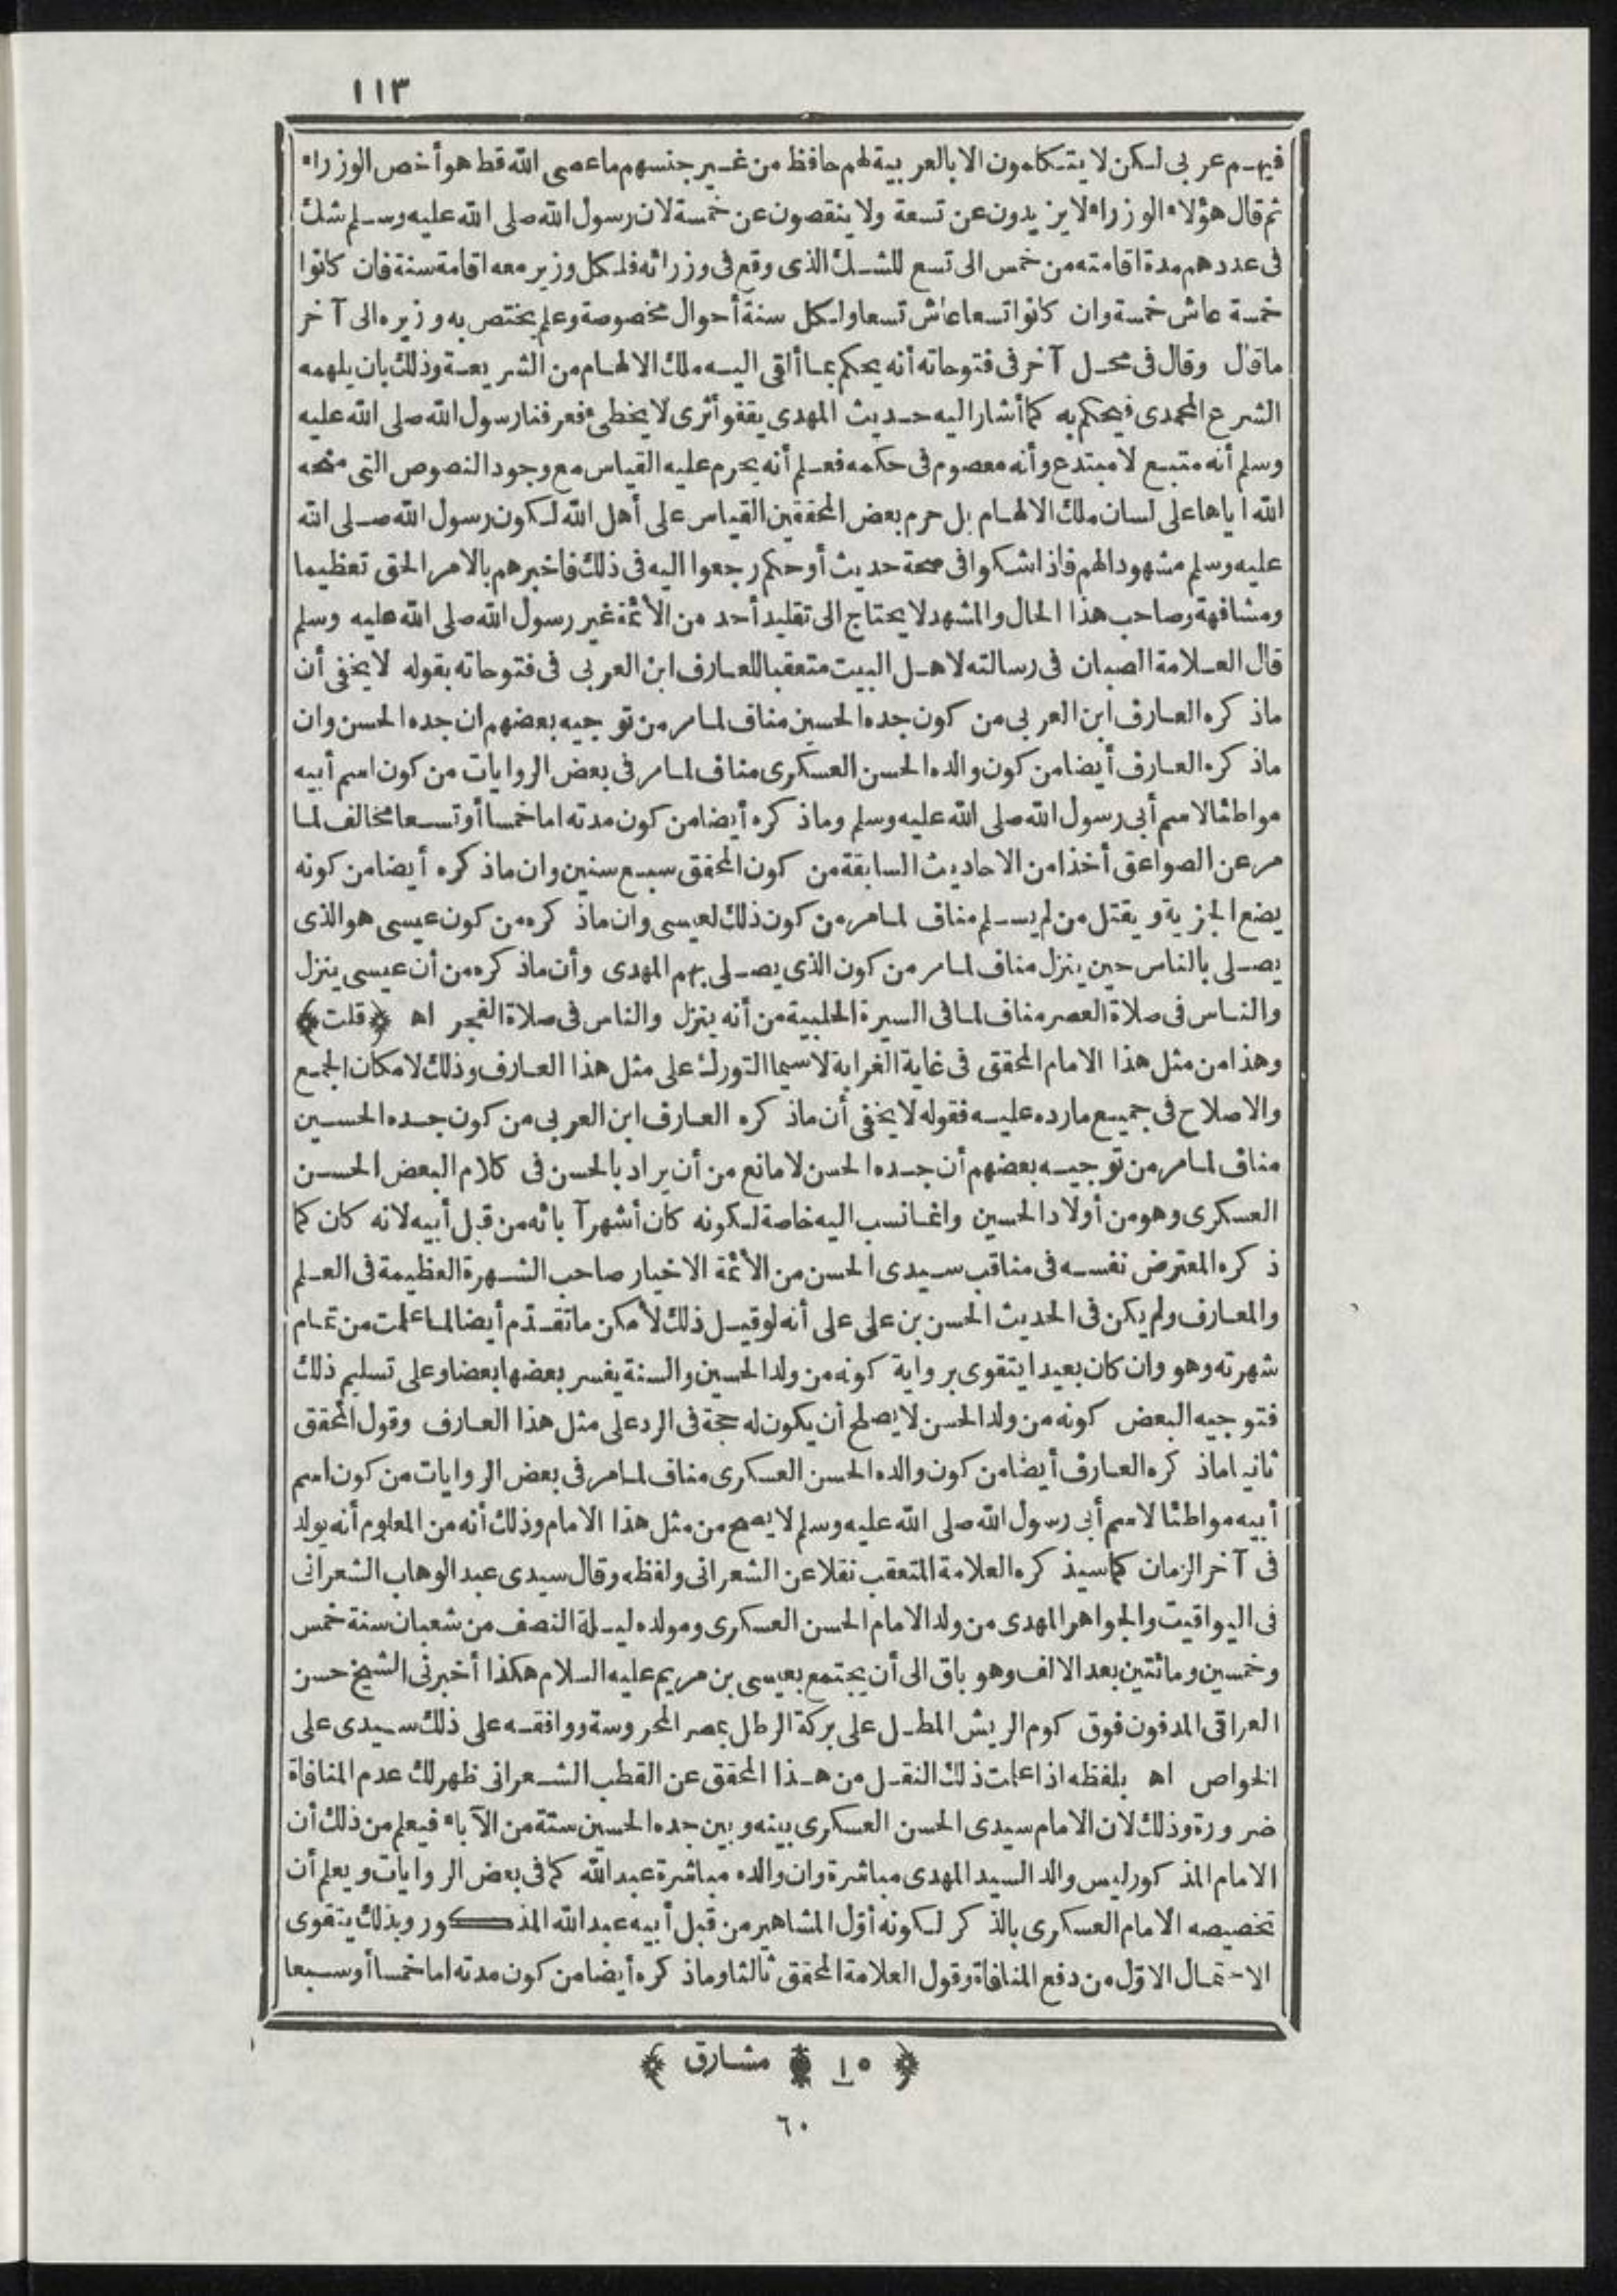 ١١٣
فيهم عربى لكن لا يتكلمون الا بالعربية لهم حافظ من غير جنسهم ما عصى الله قط هو أخص الوزراء
ثم قال هؤلاء الوزراء لا يزيدون عن تسعة ولا ينقصون عن خمسة لان رسول الله صلى الله عليه وسلم شك
فى عددهم مدة اقامته من خمس الى تسع للشك الذى وقع فى وزرائه فلكل وزير معه اقامة سنة فان كانوا
خمسة عاش خمسة وان كانوا تسعا عاش تسعا ولكل سنة أحوال مخصوصة وعلم يختص به وزيره الى آخر
ما قال وقال فى محل آخر فى فتوحاته أنه يحكم بما ألقى اليه ملك الالهام من الشريعة وذلك بان يلهمه
الشرع المحمدى فيحكم به كما أشار اليه حديث المهدى يقفو أثرى لا يخطئ فعرفنا رسول الله صلى الله عليه
وسلم أنه متبع لا مبتدع وأنه معصوم فى حكمه فعلم أنه يحرم عليه القياس مع وجود النصوص التى منحه
الله اياها على لسان ملك الالهام بل حرم بعض المحققين القياس على أهل الله لكون رسول الله صلى الله
عليه وسلم مشهودا لهم فاذا شكوا فى صحة حديث أو حكم رجعوا اليه فى ذلك فاخبرهم بالامر الحق تعظيما
ومشافهة وصاحب هذا الحال والمشهد لا يحتاج الى تقليد أحد من الأئمة غير رسول الله صلى الله عليه وسلم
قال العلامة الصبان فى رسالته لاهل البيت متعقبا للعارف ابن العربى فى فتوحاته بقوله لا يخفى أن
ماذكره العارف ابن العربى من كون جده الحسين مناف لما مر من توجيه بعضهم ان جده الحسن وان
ماذكره العارف أيضا من كون والده الحسن العسكرى مناف لما مر فى بعض الروايات من كون اسم أبيه
مواطئا لاسم أبى رسول الله صلى الله عليه وسلم وماذكره أيضا من كون مدته اما خمسا أو تسعا مخالف لما
مر عن الصواعق أخذا من الاحاديث السابقة من كون المحقق سبع سنين وان ماذكره أيضا من كونه
يضع الجزية ويقتل من لم يسلم مناف لما مر من كون ذلك لعيسى وان ماذكره من كون عيسى هو الذى
يصلى بالناس حين ينزل مناف لما مر من كون الذى يصلى بهم المهدى وأن ماذكره من أن عيسى ينزل
والناس فى صلاة العصر مناف لما فى السيرة الحلبية من أنه ينزل والناس فى صلاة الفجر اه ﴿قلت﴾
وهذا من مثل هذا الامام المحقق فى غاية الغرابة لاسيما التورك على مثل هذا العارف وذلك لامكان الجمع
والاصلاح فى جميع ما رده عليه فقوله لا يخفى أن ماذكره العارف ابن العربى من كون جده الحسين
مناف لما مر من توجيه بعضهم أن جده الحسن لا مانع من أن يراد بالحسن فى كلام البعض الحسن
العسكرى وهو من أولاد الحسين وانما نسب اليه خاصة لكونه كان أشهر آبائه من قبل أبيه لانه كان كما
ذكره المعترض نفسه فى مناقب سيدى الحسن من الأئمة الاخيار صاحب الشهرة العظيمة فى العلم
والمعارف ولم يكن فى الحديث الحسن بن على على أنه لو قيل ذلك لأمكن ما تقدّم أيضا لما علمت من تمام
شهرته وهو وان كان بعيدا يتقوى برواية كونه من ولد الحسين والسنة يفسر بعضها بعضا وعلى تسليم ذلك
فتوجيه البعض كونه من ولد الحسن لا يصلح أن يكون له حجة فى الرد على مثل هذا العارف وقول المحقق
ثانيا ماذكره العارف أيضا من كون والده الحسن العسكرى مناف لما مر فى بعض الروايات من كون اسم
أبيه مواطئا لاسم أبى رسول الله صلى الله عليه وسلم لا يصح من مثل هذا الامام وذلك أنه من المعلوم أنه يولد
فى آخر الزمان كما سيذكره العلامة المتعقب نقلا عن الشعرانى ولفظه وقال سيدى عبد الوهاب الشعرانى
فى اليواقيت والجواهر المهدى من ولد الامام الحسن العسكرى ومولده ليلة النصف من شعبان سنة خمس
وخمسين ومائتين بعد الالف وهو باق الى أن يجتمع بعيسى بن مريم عليه السلام هكذا أخبرنى الشيخ حسن
العراقى المدفون فوق كوم الريش المطل على بركة الرطل بمصر المحروسة ووافقه على ذلك سيدى على
الخواص اه بلفظه اذا علمت ذلك النقل من هذا المحقق عن القطب الشعرانى ظهر لك عدم المنافاة
ضرورة وذلك لان الامام سيدى الحسن العسكرى بينه وبين جده الحسين ستة من الآباء فيعلم من ذلك أن
الامام المذكور ليس والد السيد المهدى مباشرة وان والده مباشرة عبد الله كما فى بعض الروايات ويعلم أن
تخصيصه الامام العسكرى بالذكر لكونه أوّل المشاهير من قبل أبيه عبد الله المذكور وبذلك يتقوى
الاحتمال الاوّل من دفع المنافاة وقول العلامة المحقق ثالثا وماذكره أيضا من كون مدته اما خمسا أو سبعا
﴿ ١٥ مشارق ﴾
٦٠